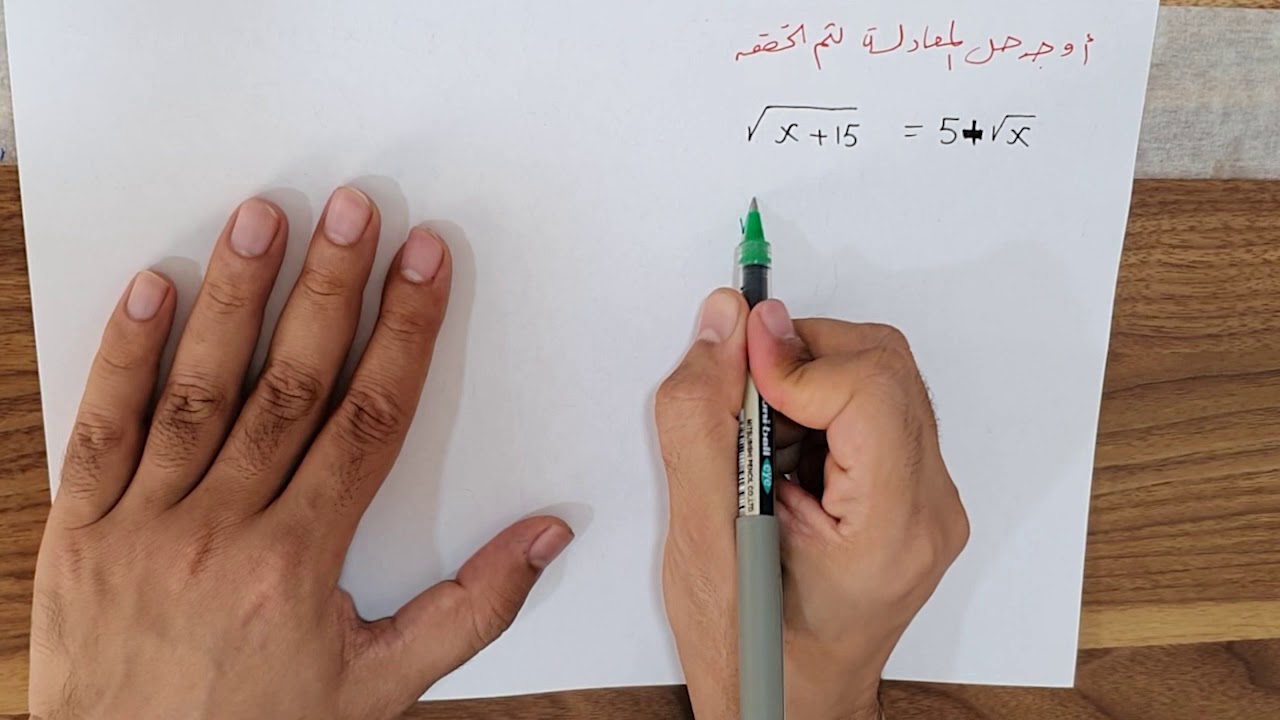 أوجد حل المعادلة ثم اتحققه
√x+15 = 5+√x
uni-ball eye
MITSUBISHI PENCIL CO.,LTD